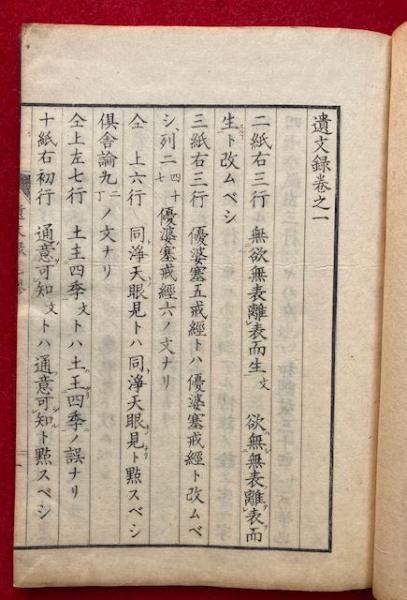 遺文録巻之一
二紙右三行 無欲無表離表而生文 欲無無表離表而
生ト改ムベシ
三紙右三行 優婆塞五戒經トハ優婆塞戒經ト改ムベ
シ、列二四十七優婆塞戒經六ノ文ナリ
仝 上六行 同淨天眼見トハ同淨天眼見ト點スベシ
倶舎論九二丁ノ文ナリ
仝上左七行 土主四季文トハ土王四季ノ誤ナリ
十紙右初行 通意可知文トハ通意可知ト點スベシ